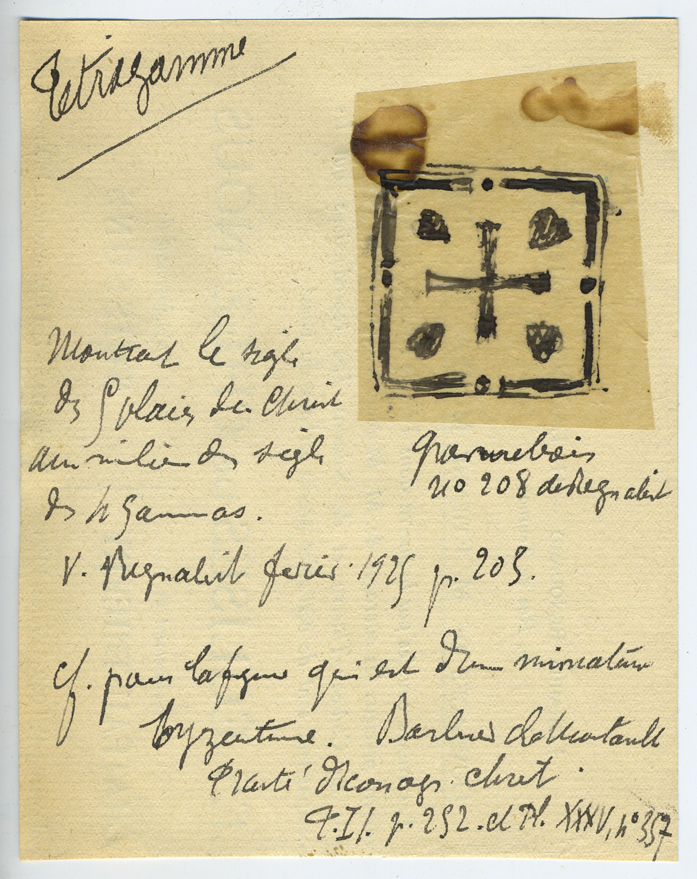 Tetragamme
Montrant le sigle
des 5 plaies du Christ
au milieu des sigle
des 4 Gammas.
V. Regnabit fevrier 1925 p. 203.
no 208 de Regnabit
cf. pour la figure qui est d'une miniature
byzantine. Barbier de Montault
Traité d'Iconogr. chret.
T. II. p. 252. et Pl. XXXV, no 357